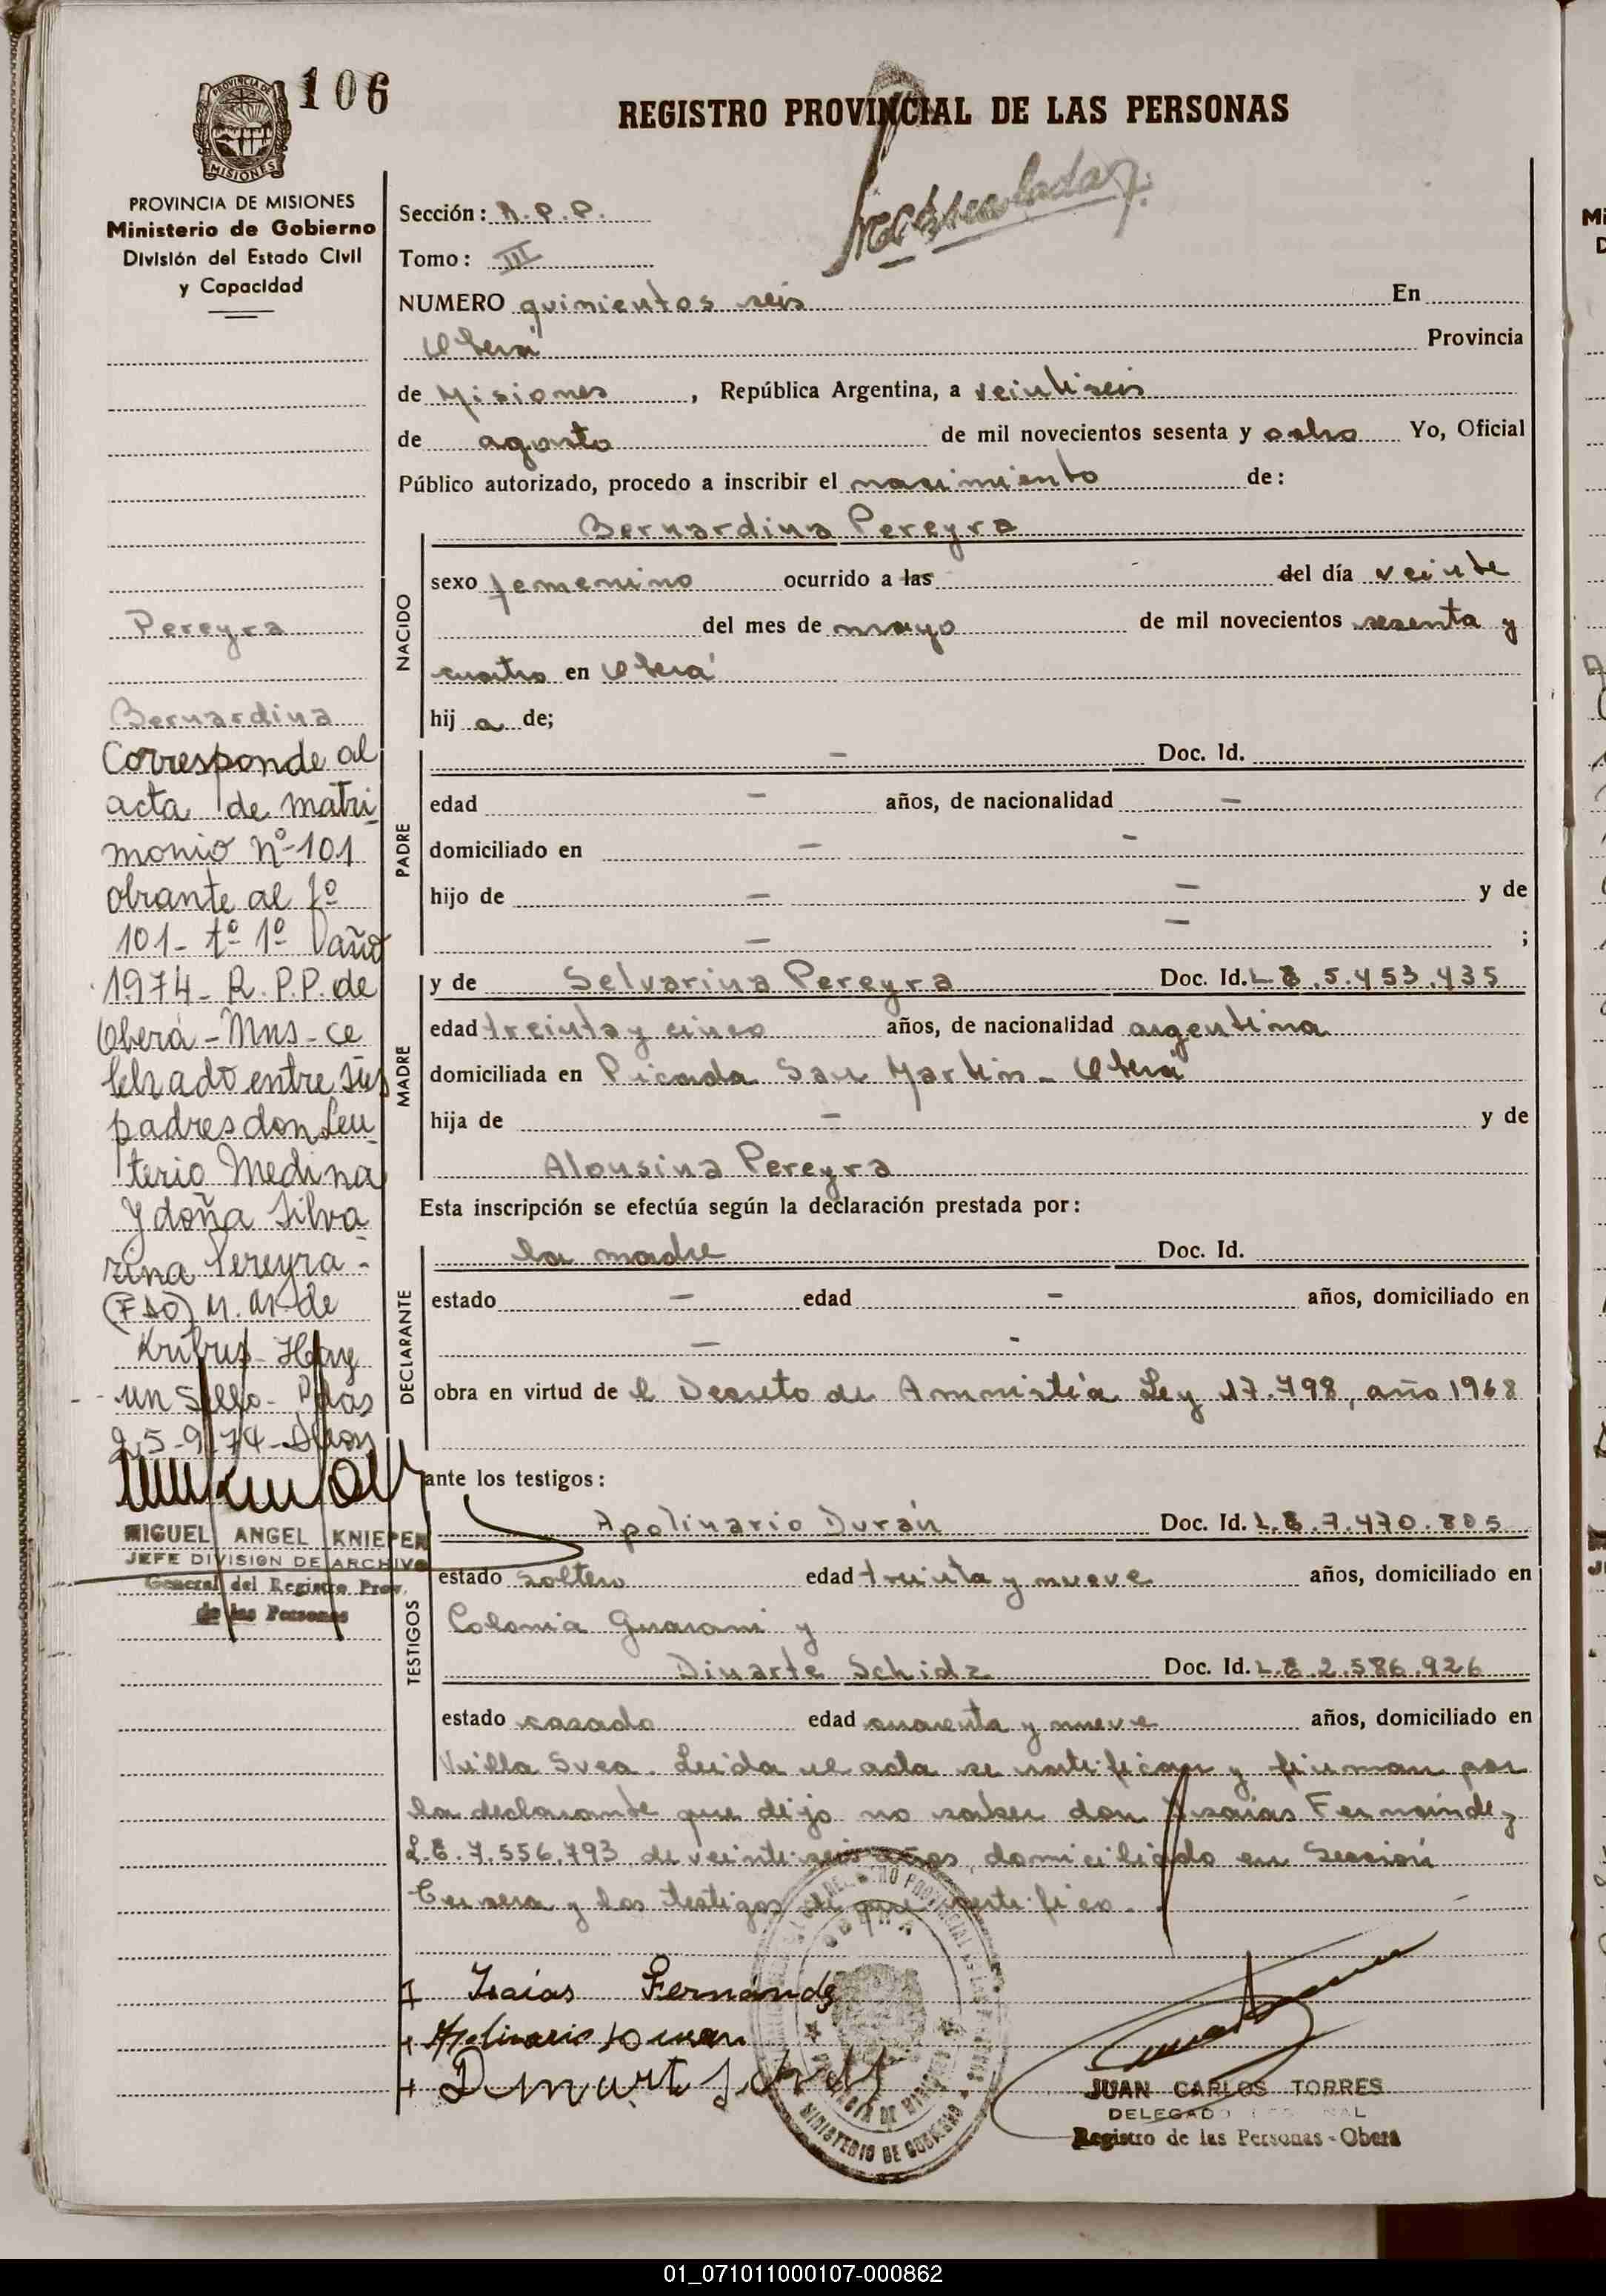 106
REGISTRO PROVINCIAL DE LAS PERSONAS
PROVINCIA DE
MISIONES
PROVINCIA DE MISIONES
Ministerio de Gobierno
División del Estado Civil
y Capacidad
Sección: R.P.P.
Tomo: III
NUMERO quinientos seis En
Oberá Provincia
de Misiones, República Argentina, a veintiseis
de agosto de mil novecientos sesenta y ocho Yo, Oficial
Público autorizado, procedo a inscribir el nacimiento de:
Bernardina Pereyra
NACIDO
sexo femenino ocurrido a las del día veinte
del mes de mayo de mil novecientos sesenta y
cuatro en Oberá
hij a de;
PADRE
- Doc. Id.
edad - años, de nacionalidad -
domiciliado en - -
hijo de - - y de
- - ;
MADRE
y de Selvarina Pereyra Doc. Id. L.E. 5.453.435
edad treinta y cinco años, de nacionalidad argentina
domiciliada en Picada San Martín - Oberá
hija de - y de
Alousina Pereyra
Esta inscripción se efectúa según la declaración prestada por:
DECLARANTE
la madre Doc. Id.
estado - edad - años, domiciliado en
- -
obra en virtud de l Decreto de Amnistía Ley 17.798, año 1968
ante los testigos:
TESTIGOS
Apolinario Durán Doc. Id. L.E. 7.470.805
estado soltero edad treinta y nueve años, domiciliado en
Colonia Guarani y
Dinarte Schidz Doc. Id. L.E. 2.586.926
estado casado edad cuarenta y nueve años, domiciliado en
Villa Svea. Leida el acta se ratifican y firman por
la declarante que dijo no saber don Isaías Fernández
L.E. 7.556.793 de veintiseis años, domiciliado en Sección
Tercera y los testigos de que certifico.
Isaías Fernández
Apolinario Duran
JUAN CARLOS TORRES
DELEGADO
Registro de las Personas - Oberá
OBERA
MINISTERIO DE GOBIERNO
Pereyra
Bernardina
Corresponde al
acta de matri
monio Nº 101
obrante al fº
101 - tº 1º año
1974 - R.P.P. de
Oberá - Mns - ce
lebrado entre sus
padres don Leu
terio Medina
y doña Silva
rina Pereyra -
(FDO) M. A. de
Kribus - Hay
un Sello - Pdas
25-9-74 -
MIGUEL ANGEL KNIEPER
JEFE DIVISION DE ARCHIVO
General del Registro Prov.
de las Personas
01_071011000107-000862